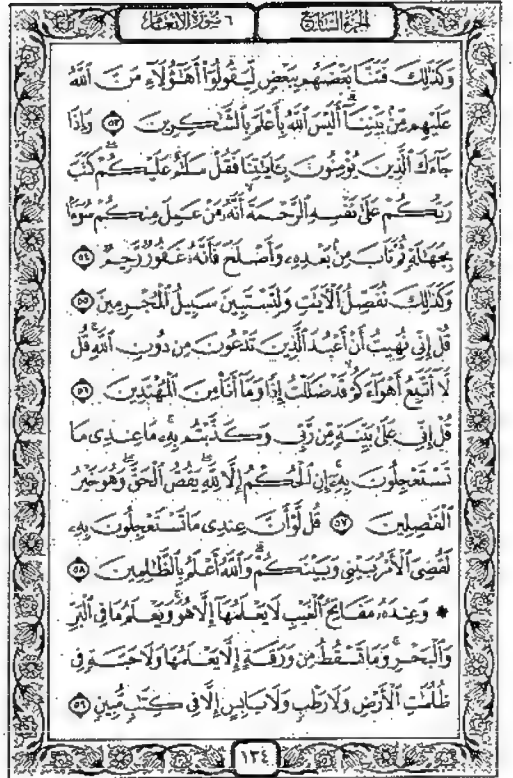 الجزء السابع
٦ سورة الأنعام
وَكَذَٰلِكَ فَتَنَّا بَعْضَهُم بِبَعْضٍ لِّيَقُولُوٓا۟ أَهَٰٓؤُلَآءِ مَنَّ ٱللَّهُ
عَلَيْهِم مِّنۢ بَيْنِنَآ ۗ أَلَيْسَ ٱللَّهُ بِأَعْلَمَ بِٱلشَّٰكِرِينَ ٥٣ وَإِذَا
جَآءَكَ ٱلَّذِينَ يُؤْمِنُونَ بِـَٔايَٰتِنَا فَقُلْ سَلَٰمٌ عَلَيْكُمْ ۖ كَتَبَ
رَبُّكُمْ عَلَىٰ نَفْسِهِ ٱلرَّحْمَةَ ۖ أَنَّهُۥ مَنْ عَمِلَ مِنكُمْ سُوٓءًۢا
بِجَهَٰلَةٍ ثُمَّ تَابَ مِنۢ بَعْدِهِۦ وَأَصْلَحَ فَأَنَّهُۥ غَفُورٌ رَّحِيمٌ ٥٤
وَكَذَٰلِكَ نُفَصِّلُ ٱلْءَايَٰتِ وَلِتَسْتَبِينَ سَبِيلُ ٱلْمُجْرِمِينَ ٥٥
قُلْ إِنِّى نُهِيتُ أَنْ أَعْبُدَ ٱلَّذِينَ تَدْعُونَ مِن دُونِ ٱللَّهِ ۚ قُل
لَّآ أَتَّبِعُ أَهْوَآءَكُمْ ۙ قَدْ ضَلَلْتُ إِذًا وَمَآ أَنَا۠ مِنَ ٱلْمُهْتَدِينَ ٥٦
قُلْ إِنِّى عَلَىٰ بَيِّنَةٍ مِّن رَّبِّى وَكَذَّبْتُم بِهِۦ ۚ مَا عِندِى مَا
تَسْتَعْجِلُونَ بِهِۦٓ ۚ إِنِ ٱلْحُكْمُ إِلَّا لِلَّهِ ۖ يَقُصُّ ٱلْحَقَّ ۖ وَهُوَ خَيْرُ
ٱلْفَٰصِلِينَ ٥٧ قُل لَّوْ أَنَّ عِندِى مَا تَسْتَعْجِلُونَ بِهِۦ
لَقُضِىَ ٱلْأَمْرُ بَيْنِى وَبَيْنَكُمْ ۗ وَٱللَّهُ أَعْلَمُ بِٱلظَّٰلِمِينَ ٥٨
وَعِندَهُۥ مَفَاتِحُ ٱلْغَيْبِ لَا يَعْلَمُهَآ إِلَّا هُوَ ۚ وَيَعْلَمُ مَا فِى ٱلْبَرِّ
وَٱلْبَحْرِ ۚ وَمَا تَسْقُطُ مِن وَرَقَةٍ إِلَّا يَعْلَمُهَا وَلَا حَبَّةٍ فِى
ظُلُمَٰتِ ٱلْأَرْضِ وَلَا رَطْبٍ وَلَا يَابِسٍ إِلَّا فِى كِتَٰبٍ مُّبِينٍ ٥٩
١٣٤